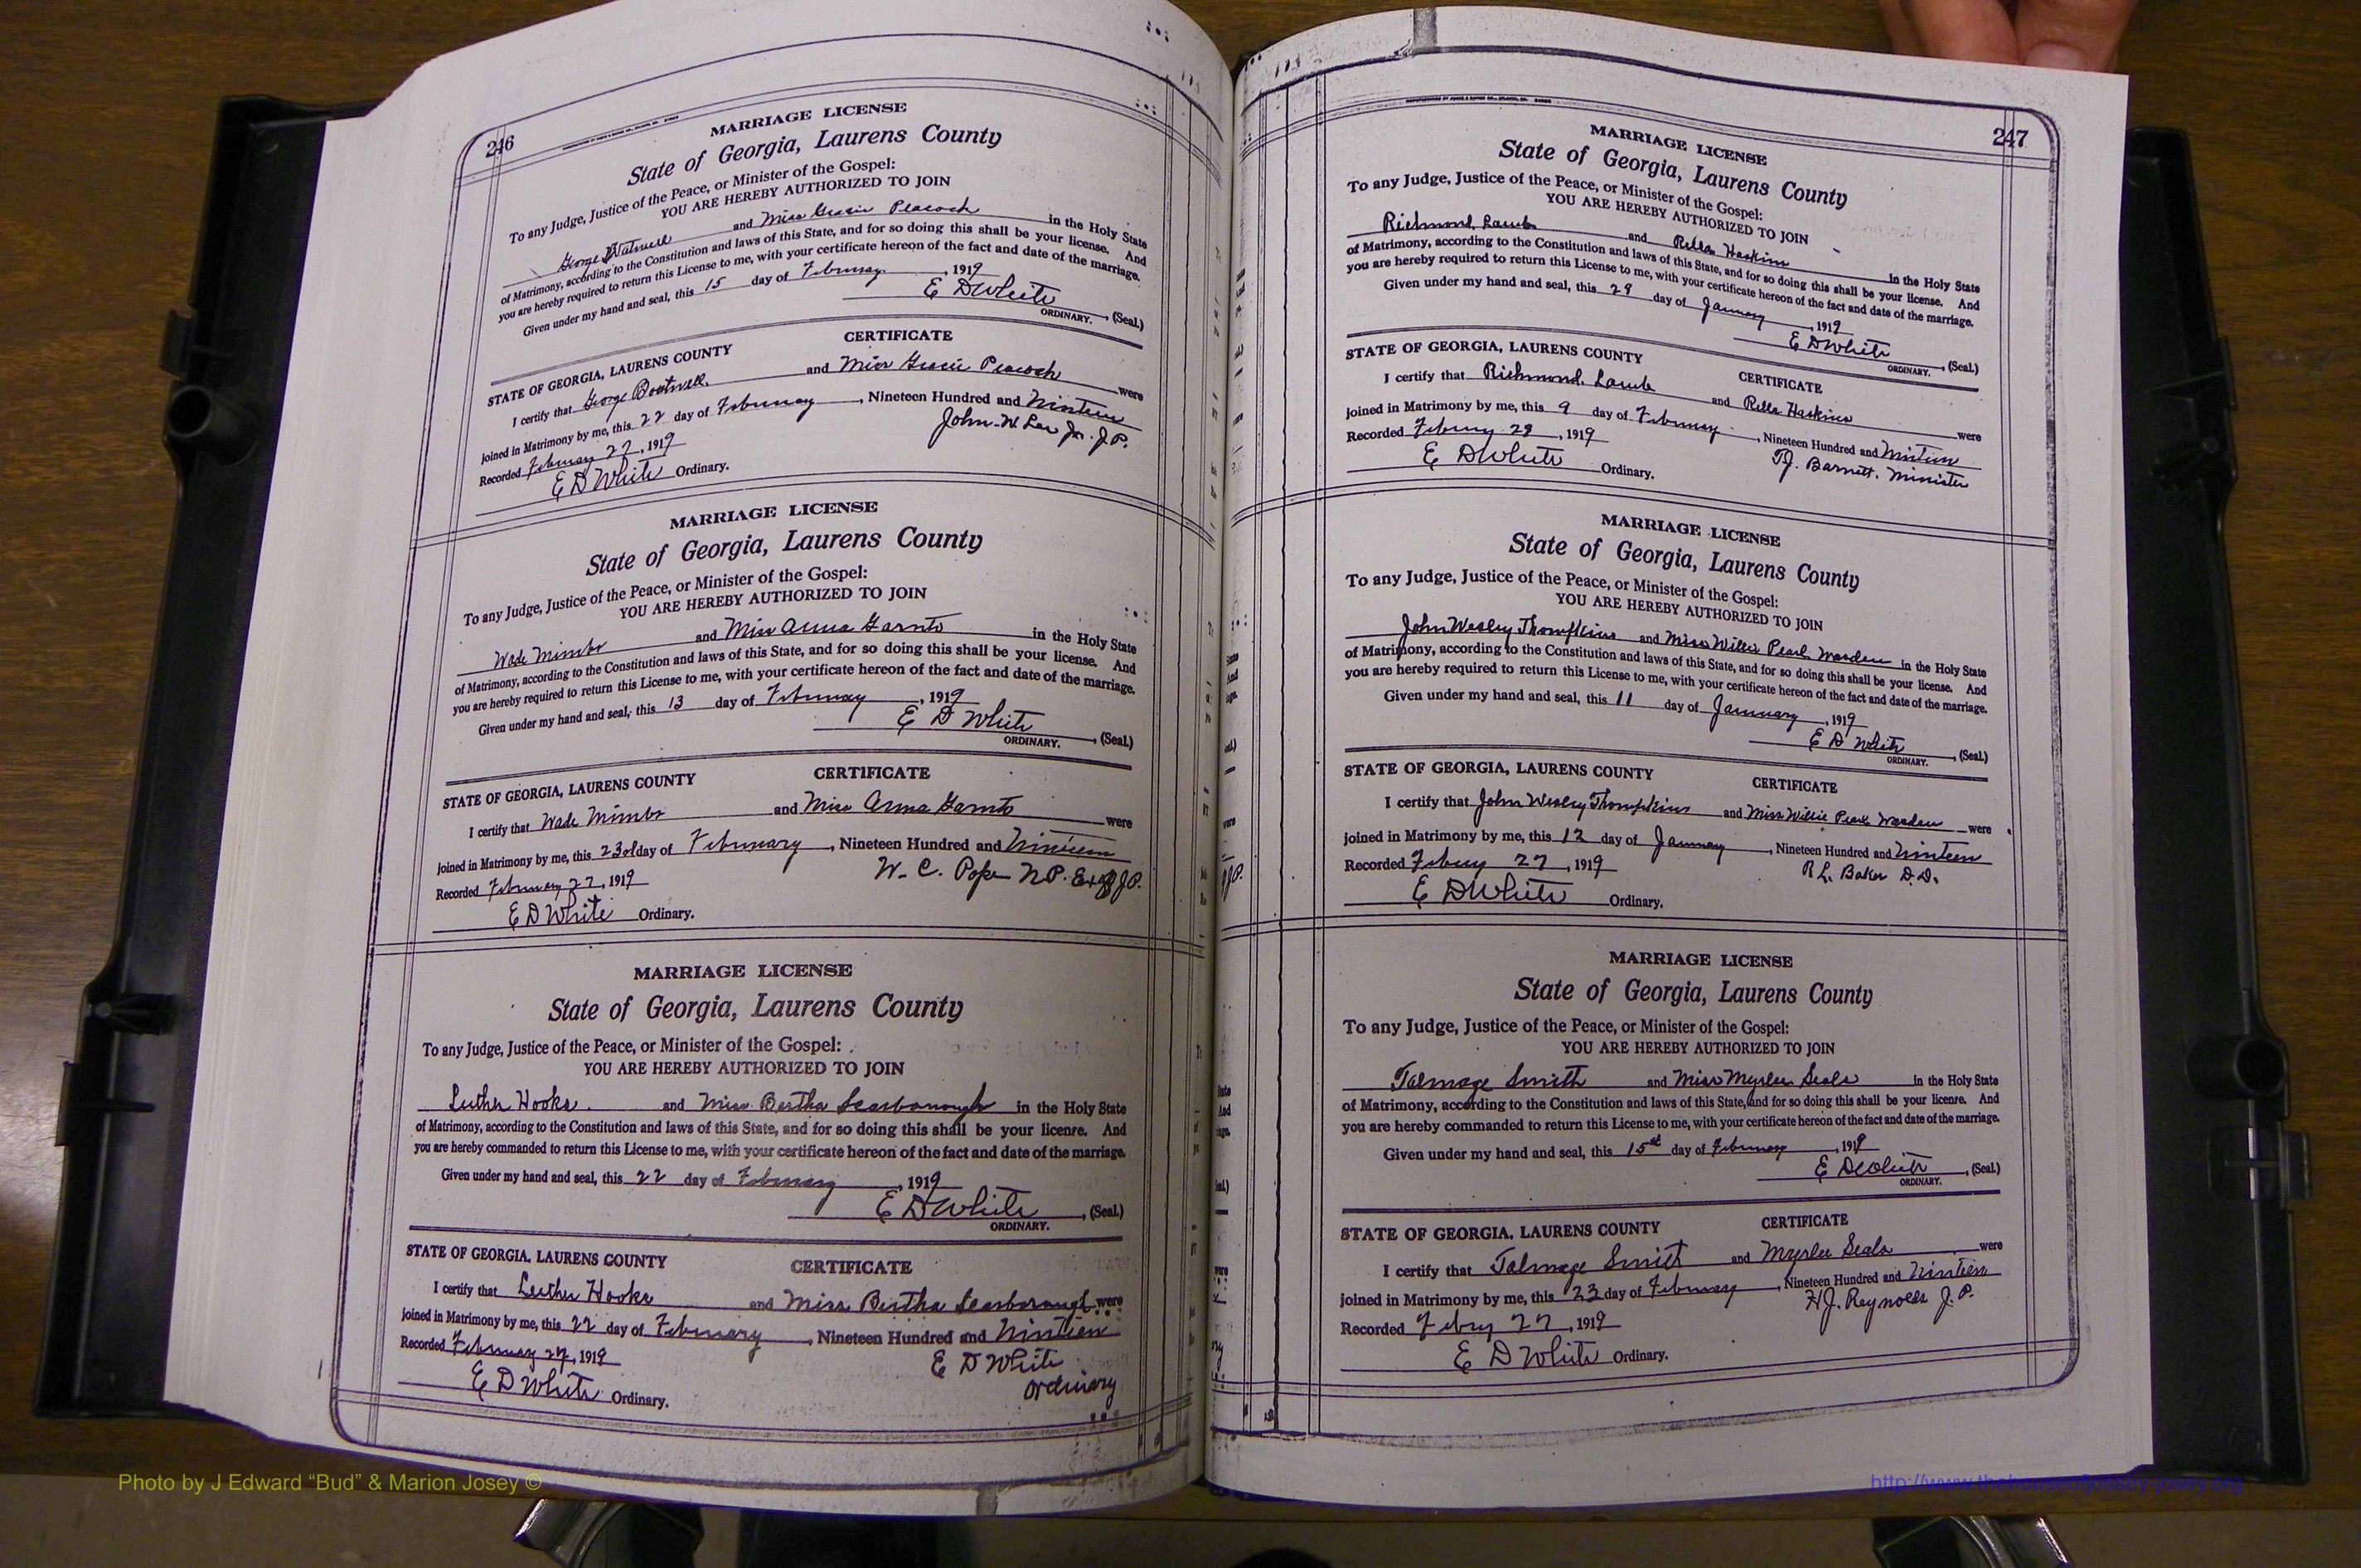 246
MARRIAGE LICENSE
State of Georgia, Laurens County
To any Judge, Justice of the Peace, or Minister of the Gospel:
YOU ARE HEREBY AUTHORIZED TO JOIN
George Batwell and Miss Gracie Peacock in the Holy State
of Matrimony, according to the Constitution and laws of this State, and for so doing this shall be your license. And
you are hereby required to return this License to me, with your certificate hereon of the fact and date of the marriage.
Given under my hand and seal, this 15 day of February, 1919
E D White, (Seal.)
ORDINARY.
CERTIFICATE
STATE OF GEORGIA, LAURENS COUNTY
I certify that George Boatwell. and Miss Gracie Peacock were
joined in Matrimony by me, this 22 day of February, Nineteen Hundred and Ninteen
Recorded February 27, 1919 John W Lee Jr. J.P.
E D White Ordinary.
MARRIAGE LICENSE
State of Georgia, Laurens County
To any Judge, Justice of the Peace, or Minister of the Gospel:
YOU ARE HEREBY AUTHORIZED TO JOIN
Wade Mimbs and Miss Anna Garnto in the Holy State
of Matrimony, according to the Constitution and laws of this State, and for so doing this shall be your license. And
you are hereby required to return this License to me, with your certificate hereon of the fact and date of the marriage.
Given under my hand and seal, this 13 day of February, 1919
E D White, (Seal.)
ORDINARY.
CERTIFICATE
STATE OF GEORGIA, LAURENS COUNTY
I certify that Wade Mimbs and Miss Anna Garnto were
joined in Matrimony by me, this 23rd day of February, Nineteen Hundred and Nineteen
Recorded February 27, 1919 W. C. Pope N.P. Ex off J.P.
E D White Ordinary.
MARRIAGE LICENSE
State of Georgia, Laurens County
To any Judge, Justice of the Peace, or Minister of the Gospel:
YOU ARE HEREBY AUTHORIZED TO JOIN
Luther Hooks. and Miss Bertha Scarborough in the Holy State
of Matrimony, according to the Constitution and laws of this State, and for so doing this shall be your license. And
you are hereby commanded to return this License to me, with your certificate hereon of the fact and date of the marriage.
Given under my hand and seal, this 22 day of February, 1919
E D White, (Seal.)
ORDINARY.
STATE OF GEORGIA, LAURENS COUNTY CERTIFICATE
I certify that Luther Hooks and Miss Bertha Scarborough were
joined in Matrimony by me, this 22 day of February, Nineteen Hundred and Ninteen
Recorded February 27, 1919 E D White
E D White Ordinary. Ordinary
247
MARRIAGE LICENSE
State of Georgia, Laurens County
To any Judge, Justice of the Peace, or Minister of the Gospel:
YOU ARE HEREBY AUTHORIZED TO JOIN
Richmond Lamb and Rilla Haskins in the Holy State
of Matrimony, according to the Constitution and laws of this State, and for so doing this shall be your license. And
you are hereby required to return this License to me, with your certificate hereon of the fact and date of the marriage.
Given under my hand and seal, this 29 day of January, 1919
E D White, (Seal.)
ORDINARY.
STATE OF GEORGIA, LAURENS COUNTY CERTIFICATE
I certify that Richmond Lamb and Rilla Haskins were
joined in Matrimony by me, this 9 day of February, Nineteen Hundred and Ninteen
Recorded 1919 T.J. Barnett. Minister
E D White Ordinary.
MARRIAGE LICENSE
State of Georgia, Laurens County
To any Judge, Justice of the Peace, or Minister of the Gospel:
YOU ARE HEREBY AUTHORIZED TO JOIN
John Wesley Thompkins and Miss Willie Pearl Warden in the Holy State
of Matrimony, according to the Constitution and laws of this State, and for so doing this shall be your license. And
you are hereby required to return this License to me, with your certificate hereon of the fact and date of the marriage.
Given under my hand and seal, this 11 day of January, 1919
E D White, (Seal.)
ORDINARY.
STATE OF GEORGIA, LAURENS COUNTY CERTIFICATE
I certify that John Wesley Thompkins and Miss Willie Pearl Warden were
joined in Matrimony by me, this 12 day of January, Nineteen Hundred and Ninteen
Recorded 27, 1919 R L. Baker D.D.
E D White Ordinary.
MARRIAGE LICENSE
State of Georgia, Laurens County
To any Judge, Justice of the Peace, or Minister of the Gospel:
YOU ARE HEREBY AUTHORIZED TO JOIN
Talmage Smith and Miss Myrlee Seals in the Holy State
of Matrimony, according to the Constitution and laws of this State, and for so doing this shall be your license. And
you are hereby commanded to return this License to me, with your certificate hereon of the fact and date of the marriage.
Given under my hand and seal, this 15 day of February, 1919
E D White, (Seal.)
ORDINARY.
STATE OF GEORGIA, LAURENS COUNTY CERTIFICATE
I certify that Talmage Smith and Myrlee Seals were
joined in Matrimony by me, this 23 day of February, Nineteen Hundred and Ninteen
Recorded Febry 27, 1919 H.J. Reynolds J.P.
E D White Ordinary.
Photo by J Edward “Bud” & Marion Josey ©